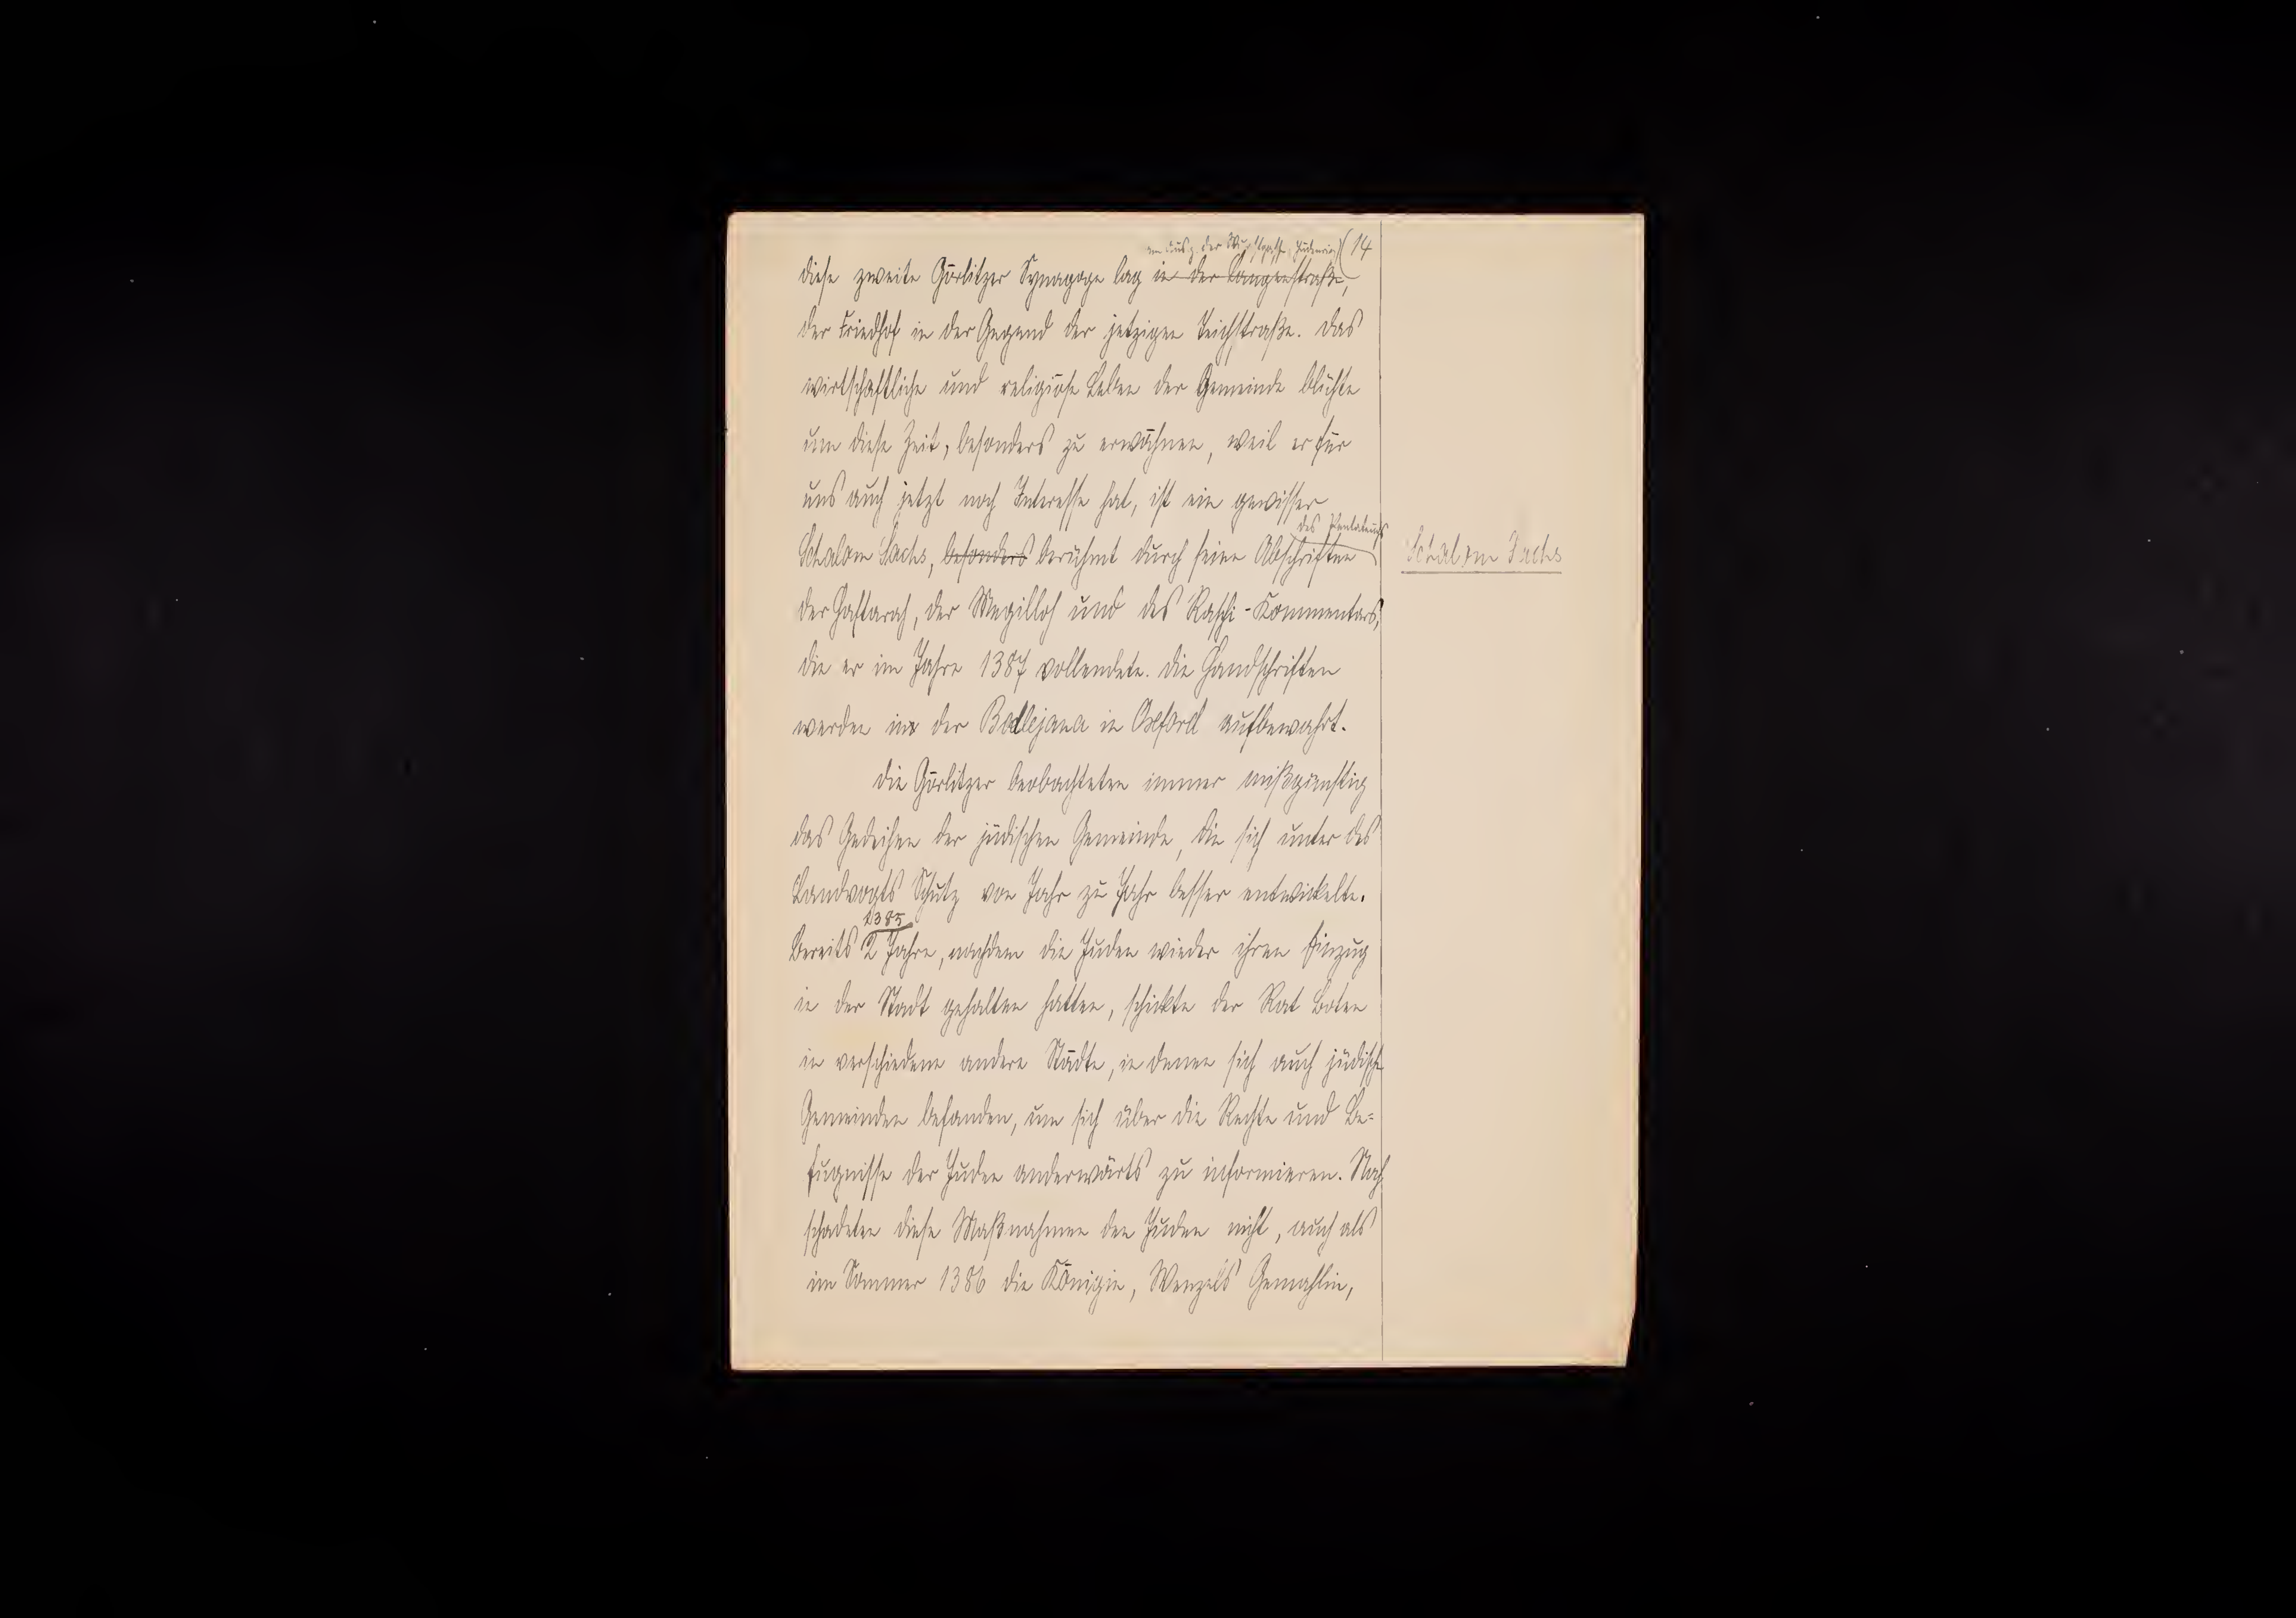 14
diese zweite Görlitzer Synagoge lag in der Langenstraße,
der Friedhof in der Gegend der jetzigen Teichstraße. Das
wirtschaftliche und religiöse Leben der Gemeinde blühte
um diese Zeit, besonders zu erwähnen, weil er für
uns auch jetzt noch Interesse hat, ist ein gewisser
des Pentateuchs
Schalom Sachs, besonders berühmt durch seine Abschriften
Schalom Sachs
der Haftarah, der Megilloh und des Raschi-Kommentars,
die er im Jahre 1387 vollendete. Die Handschriften
werden in der Bodlejana in Oxford aufbewahrt.
Die Görlitzer beobachteten immer mißgünstig
das Gedeihen der jüdischen Gemeinde, die sich unter des
Landvogts Schutz von Jahr zu Jahr besser entwickelte.
1385
Bereits 2 Jahre, nachdem die Juden wieder ihren Einzug
in der Stadt gehalten hatten, schickte der Rat Boten
in verschiedene andere Städte, in denen sich auch jüdische
Gemeinden befanden, um sich über die Rechte und Be=
fugnisse der Juden anderwärts zu informieren. Noch
schadeten diese Maßnahmen den Juden nicht, auch als
im Sommer 1386 die Königin, Wenzels Gemahlin,